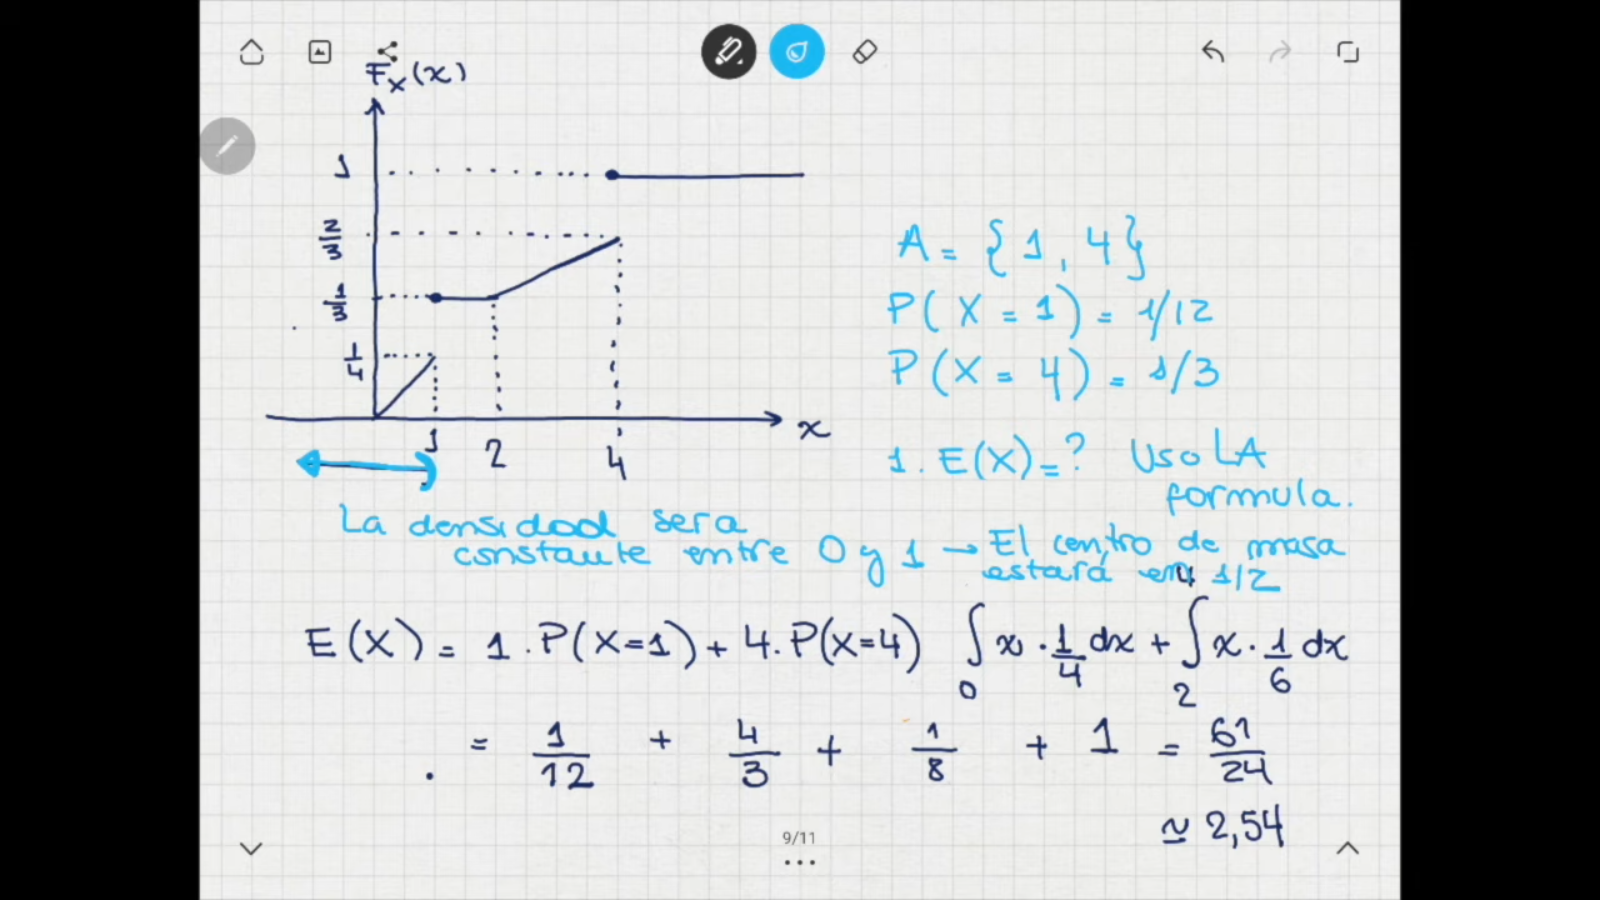 F_X(x)
1
2/3
1/3
1/4
1 2 4 x
A = {1, 4}
P(X = 1) = 1/12
P(X = 4) = 1/3
1. E(X) = ? Uso LA
formula.
La densidad sera
constante entre 0 y 1 → El centro de masa
estará en 1/2
E(X) = 1 . P(X=1) + 4. P(X=4) ∫_0 x . 1/4 dx + ∫_2^4 x . 1/6 dx
= 1/12 + 4/3 + 1/8 + 1 = 61/24
≃ 2,54
9/11